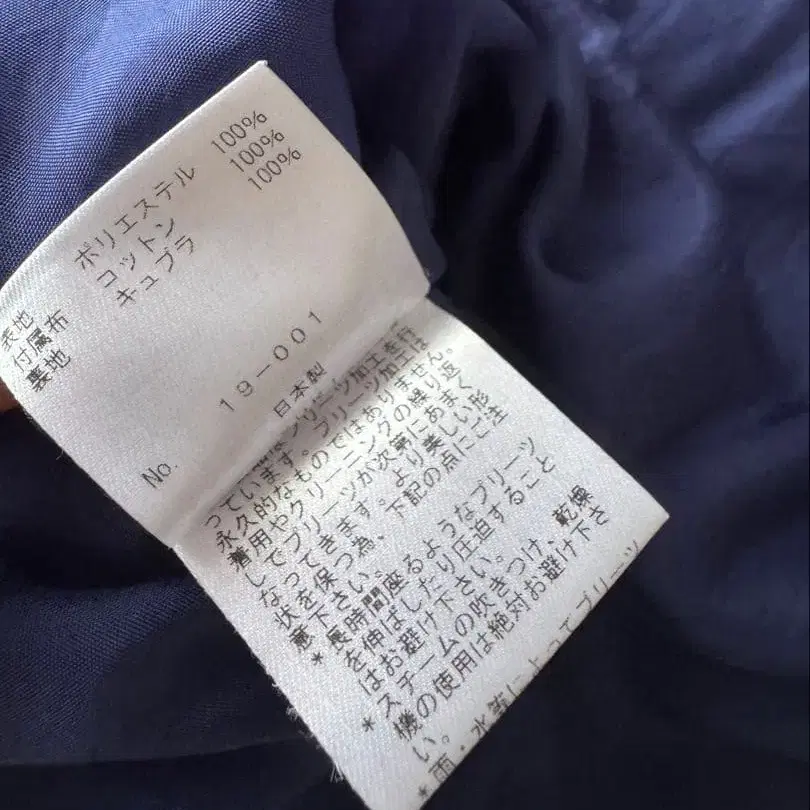 表地 ポリエステル 100%
付属布 コットン 100%
裏地 キュプラ 100%
No. 19-001
日本製
プリーツ加工を行
っています。プリーツ加工は
永久的なものではありません。
着用やクリーニングの繰り返
しでプリーツが次第にあまく
なってきます。より美しい形
状を保つ為、下記の点にご注
意下さい。
*長時間座るようなプリーツ
を伸ばしたり圧迫すること
はお避け下さい。
*スチームの吹きつけ、乾燥
機の使用は絶対お避け下さ
い。
*雨・水等によってプリーツ